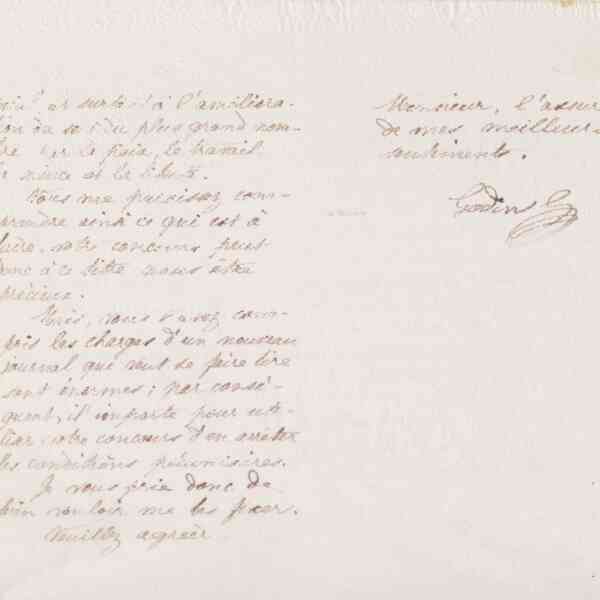 et surtout à l'améliora-
tion du sort du plus grand nom-
bre par la paix, le travail
et la liberté.
Vous me paraissez com-
prendre ainsi ce qui est à
faire, votre concours peut
donc à ce titre nous être
précieux.
Mais, vous l'avez com-
pris les charges d'un nouveau
journal qui veut se faire lire
sont énormes ; par consé-
quent, il importe pour uti-
liser votre concours d'en arrêter
les conditions pécuniaires.
Je vous prie donc de
bien vouloir me les fixer.
Veuillez agréer
Monsieur, l'assur
de mes meilleurs
sentiments.
Godin